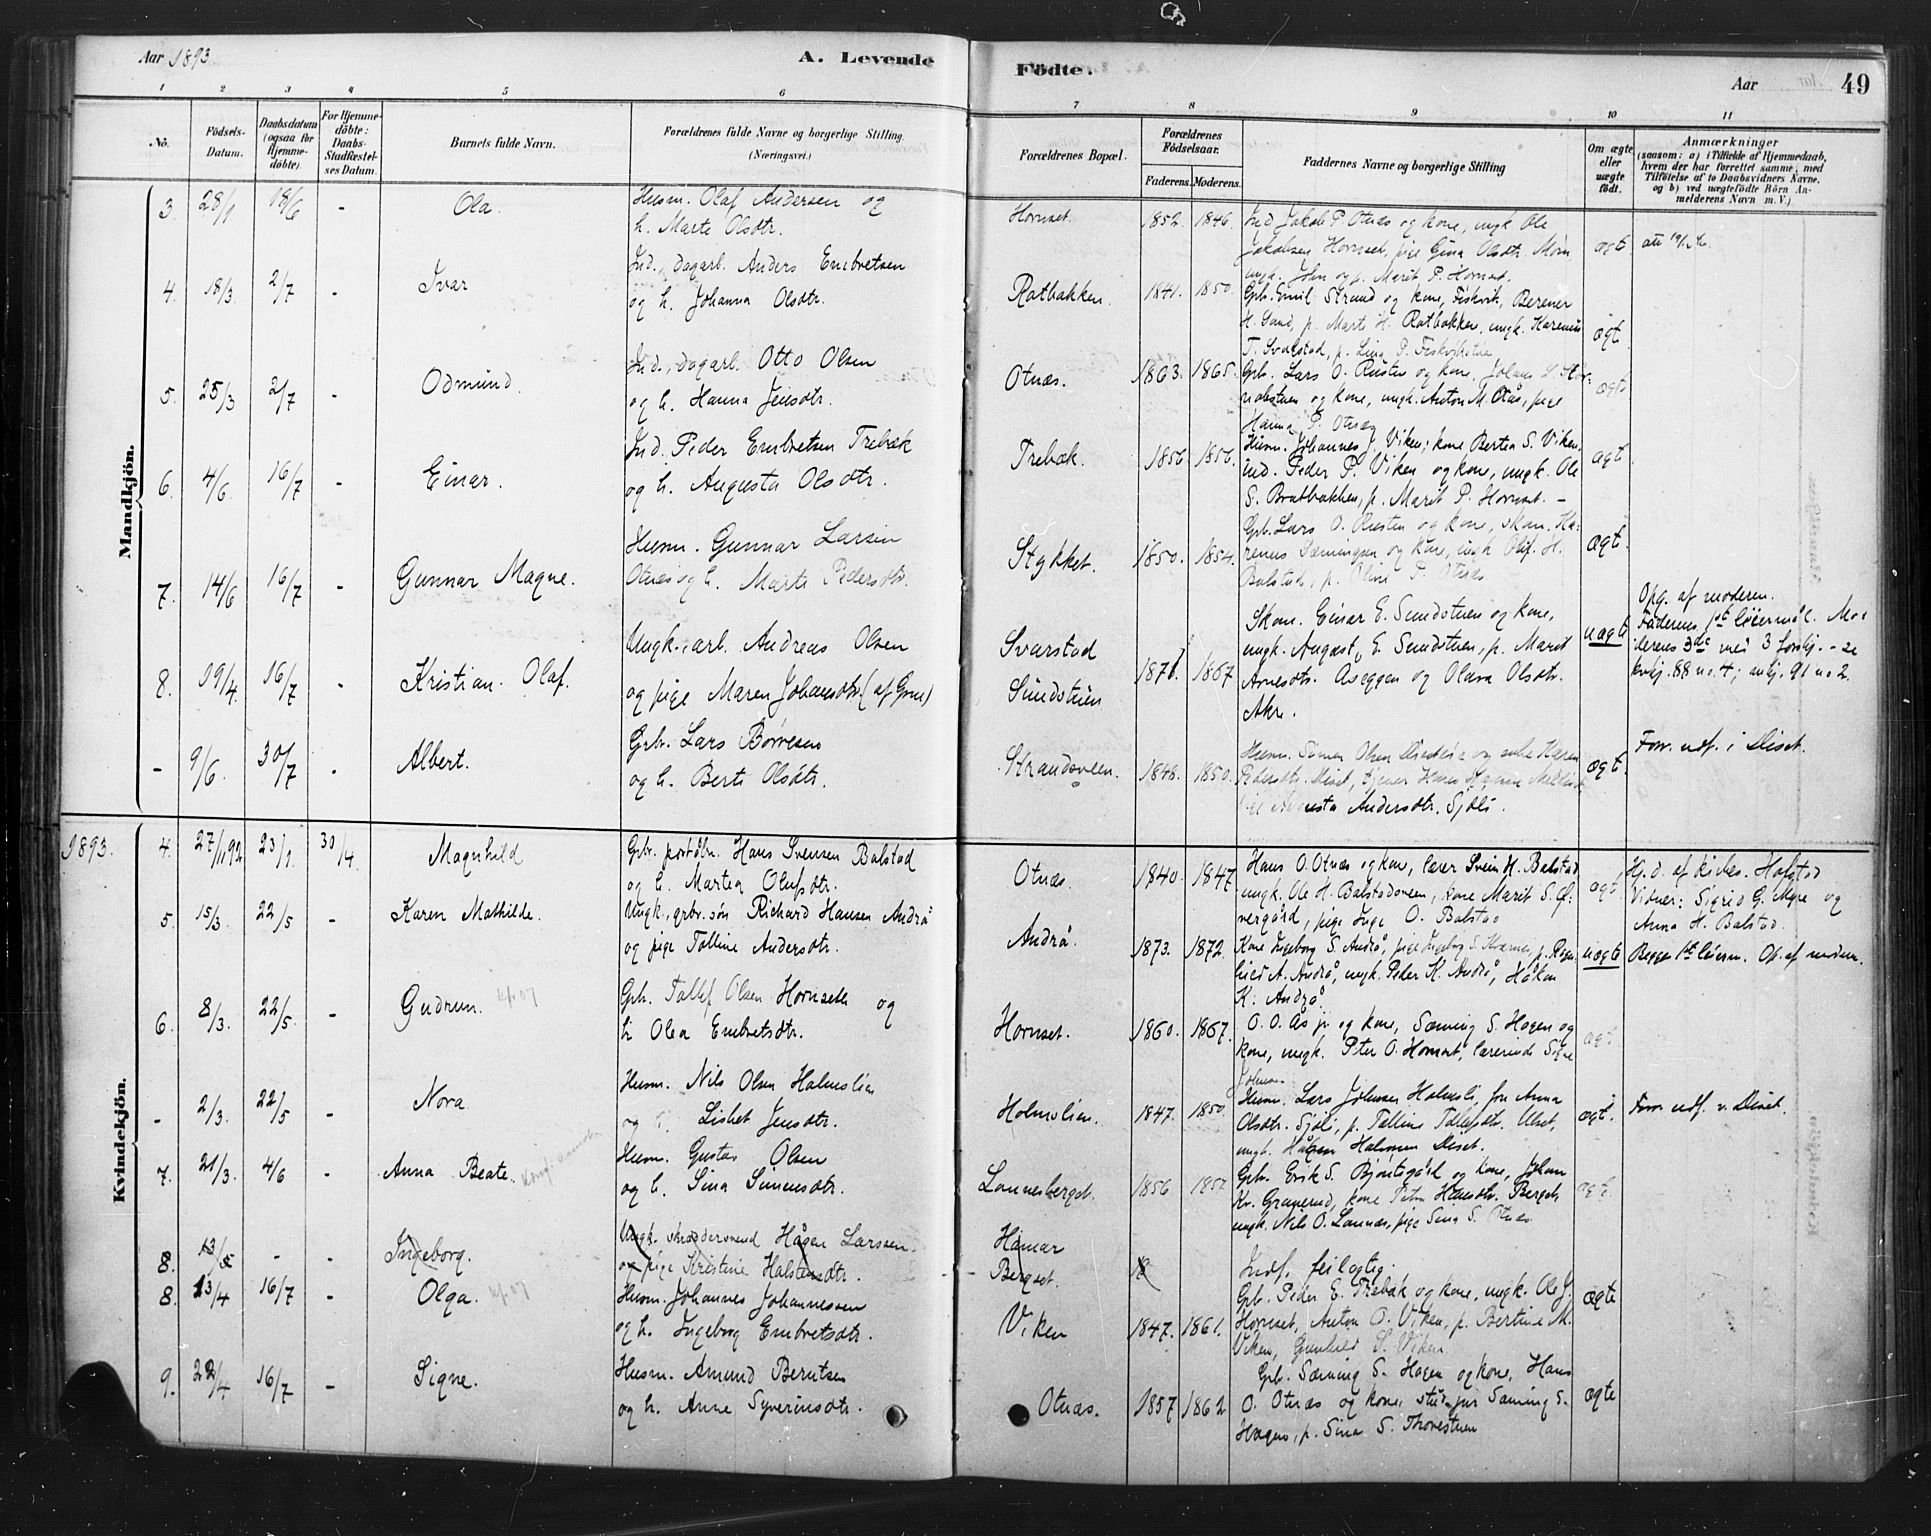 Aar 1893
A. Levende
Födte.
Aar
49
1 2 3 4 5 6 7 8 9 10 11
No.
Födsels-Datum.
Daabsdatum (ogsaa for Hjemme-döbte).
For Hjemme-döbte: Daabs-Stadfæstel-ses Datum.
Barnets fulde Navn.
Forældrenes fulde Navne og borgerlige Stilling.
(Næringsvei.)
Forældrenes Bopæl.
Forældrenes Födselsaar.
Faderens. Moderens.
Faddernes Navne og borgerlige Stilling
Om ægte eller uægte födt.
Anmærkninger
(saasom: a) i Tilfælde af Hjemmedaab, hvem der har forrettet samme, med Tilföielse af to Daabsvidners Navne, og b) ved uægtefödte Börn An-melderens Navn m. V.)
Mandkjön.
3. 28/1 18/6 - Ola. Husm. Olaf Andersen og
h. Marte Olsdtr.
Hornset. 1852. 1846. Ind. Jakob P. Otnæs og kone, ungk. Ole
Jakobsen Hornset, pige Gina Olsdtr. Moen
ungk. John og p. Marit P. Hornset.
ægt
4. 18/3. 2/7 - Ivar Ind., dagarb. Anders Embretsen
og h. Johanna Olsdtr.
Ratbakken. 1841. 1850. Gbr. Emil Strand og kone, Fiskvik, Berener
H. Sand, p. Marte H. Ratbakken, ungk. Karenius
T. Svarstad, p. Lina P. Fiskvikstuen
ægt
5. 25/3 2/7 - Odmund. Ind., dagarb. Otto Olsen
og h. Hanna Jensdtr.
Otnæs. 1863. 1865. Gbr. Lars O. Rusten og kone,
og kone, ungk. Anton M. Otnæs, pige
Hanna P. Otnæs
ægt
6. 4/6. 16/7 - Einar. Ind. Peder Embretsen Trebæk
og h. Augusta Olsdtr.
Trebæk. 1856 1856. Husm. Johannes J. Viken, kone Bertea S. Viken,
Ind. Peder P. Viken og kone, ungk. Ole
S. Bratbakken, p. Marit P. Hornset. -
ægt
7. 14/6 16/7 - Gunnar Magne. Husm. Gunnar Larsen
Otnæs og h. Marte Pedersdtr.
Stykket. 1850. 1854. Gbr. Lars O. Rusten og kone, skom. Ka-
renus Sæmingsen og kone, ungk. Olaf H.
Balstad, p. Oline P. Otnæs
ægt.
8. 19/4. 16/7 - Kristian Olaf. Ungk., arb. Andreas Olsen
og pige Maren Johansdtr. (af Grue)
Svarstad
Sundstuen
1871 1867 Skom. Einar E. Sundstuen og kone,
ungk. August E. Sundstuen, p. Marit
Arnesdtr. Aseggen og Olava Olsdtr.
Akre.
uægt
Opg. af moderen.
Faderens 1ste leiermål. Mo-
derens 3de med 3 forskj. - se
kvkj. 88 no. 4; mkj. 91 no 2.
- 9/6. 30/7 - Albert. Gbr. Lars Börresen
og h. Berte Olsdtr.
Strandveien. 1848. 1850. Husm. Simen Olsen og enke Karen
Pedersdtr. Diset, tjener Hans
pige Augusta Andersdtr. Sjöli.
ægt.
Forr. udf. i Diset.
1893.
Kvindekjön.
4. 27/11 92 23/1. 30/4. Magnhild Gbr. poståbn. Hans Svensen Balstad
og h. Martea Olufsdtr.
Otnæs. 1840. 1847. Hans O. Otnæs og kone, lærer Svein H. Balstad,
ungk. Ole H. Balstadoveen, kone Marit S. Öf-
vergård, pige Inge O. Balstad
ægt.
Hj.d. af kirkes. Hafstad
Vidner: Sigrid G. Myre og
Anna H. Balstad.
5. 15/3. 22/5 - Karen Mathilde. Ungk., gbr. sön Richard Hansen Andrå
og pige Talline Andersdtr.
Andrå. 1873. 1872. Kone Ingeborg S. Andrå, pige Ingeborg S. p. Ragn-
hild A. Andrå, ungk. Peder K. Andrå, Håkon
K. Andrå
uægte
Begges 1ste leierm. Op. af moderen.
6. 8/3. 22/5. - Gudrun. Gbr. Tollef Olsen Hornseth og
h. Olea Embretsdtr.
Hornset. 1860. 1867. O. O. Ås jr og kone, Sæming S. Hagen og
kone, ungk. Peter O. Hornset, lærerinde Signe
Johnsen
ægt
- 2/3. 22/5 - Nora Husm. Nils Olsen Holmslien
og h. Lisbet Jensdtr.
Holmslien. 1847. 1850. Husm. Lars Johnsen Holmsli, frn Anna
Olsdtr. Sjöli, p. Talline Tollefsdtr. Ulset,
ungk. Håken Halvorsen Diset.
ægt.
Forr. udf. v. Diset.
7. 21/3. 4/6 - Anna Beate. Husm. Gustav Olsen
og h. Sina Simensdtr.
Lonnesberget. 1856 Gbr. Erik S. Bjöntegård og kone, Johan
Kr. Granerud, kone Hansdtr. Berget,
ungk. Nils O. Lannæs, pige Sina S. Otnæs
ægte.
8. 13/5 - - Ingeborg. Ungk. skræddersvend Håken Larssen
og pige Kristine Halstensdtr.
Hamar
Berget.
18
Indf. feilagtig.
8. 13/4 16/7 - Olga. Husm. Johannes Johannessen
og h. Ingeborg Embretsdtr.
Viken 1847. 1861. Gbr. Peder E. Trebæk og kone, ungk. Ole J.
Hornset, Anton O. Viken, p. Bertine M.
Viken, Gunhild S. Viken
ægte
9. 22/4 16/7 - Signe. Husm. Amund Berntsen
og h. Anne Syverinsdtr.
Otnæs. 1857 1862 Gbr. Sæming S. Hagen og kone, Hans
O. Otnæs og kone, stud. jur Sæming S.
Hagen, p. Sina S. Thorestuen
ægte